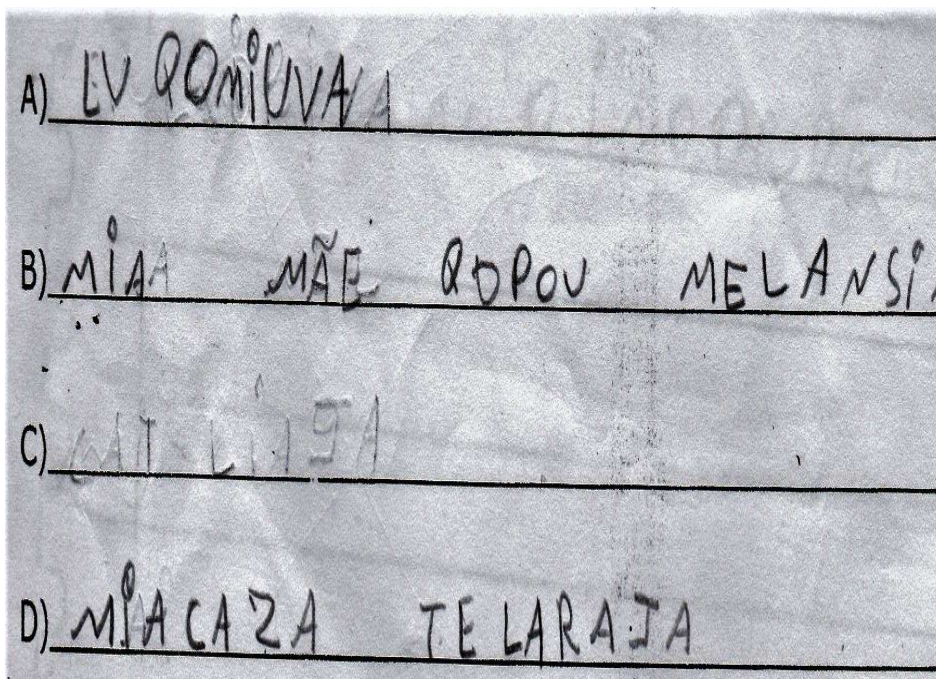 A) EU QOMIUVA
B) MIA MÃE QOPOU MELANSI
C)
D) MIA CAZA TELARAJA